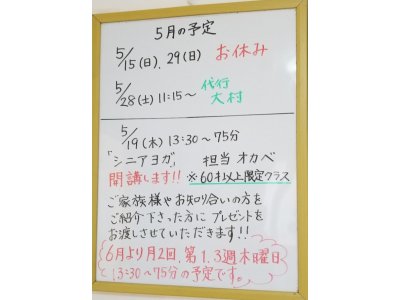 5月の予定
5/15(日)、29(日) お休み
5/28(土) 11:15〜 代行 大村
5/19(木) 13:30〜75分
「シニアヨガ」 担当 オカベ
開講します!! ※60才以上限定クラス
ご家族様やお知り合いの方を
ご紹介下さった方に プレゼントを
お渡しさせていただきます!!
6月より月2回、第1.3週木曜日
13:30〜75分の予定です。